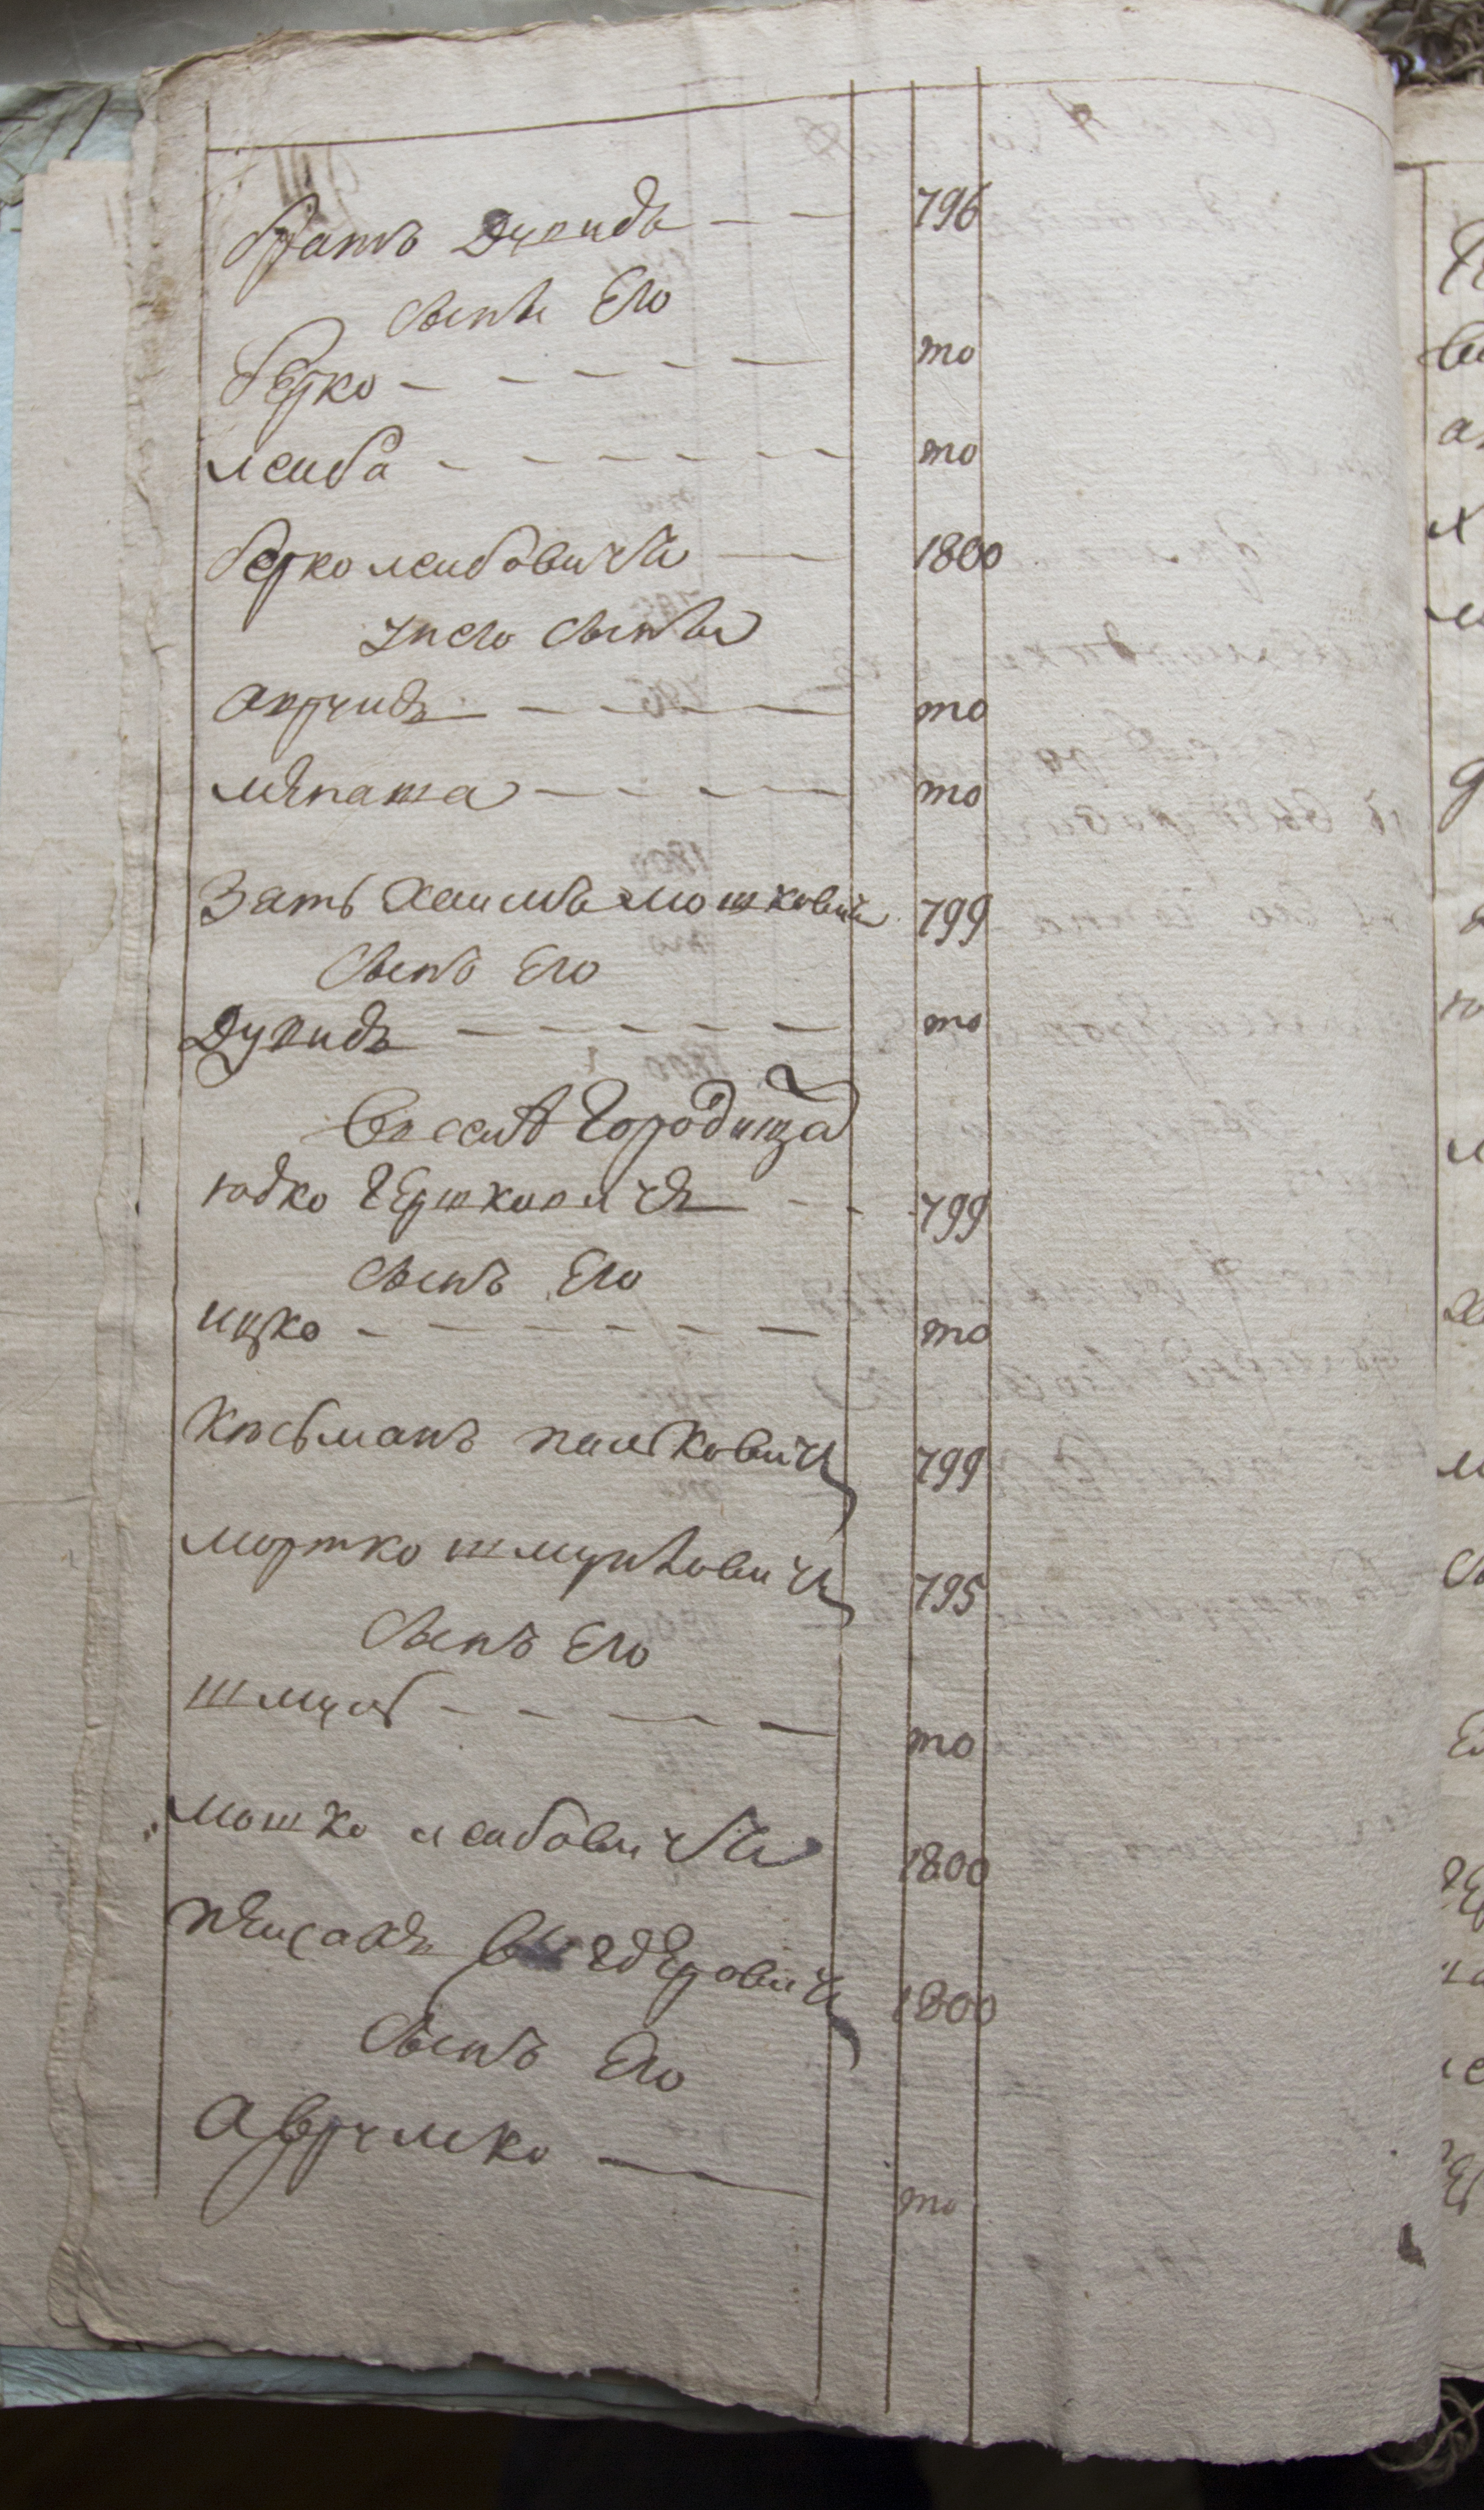 братъ Дувидъ 796
сыны Его
берко то
леиба то
берко леибовичъ 1800
унего сыны
аврумъ то
мѣнаша то
Зать хаимъ мошковичъ 799
сынъ Его
Дувидъ то
Городища
юдко Гершковичъ 799
сынъ Его
ицко то
Кисьманъ 799
мортко шмулѣовичъ 795
сынъ Его
шмуль то
мошко леибовичъ 1800
пеисахъ 1800
сынъ Его
Аврумко то